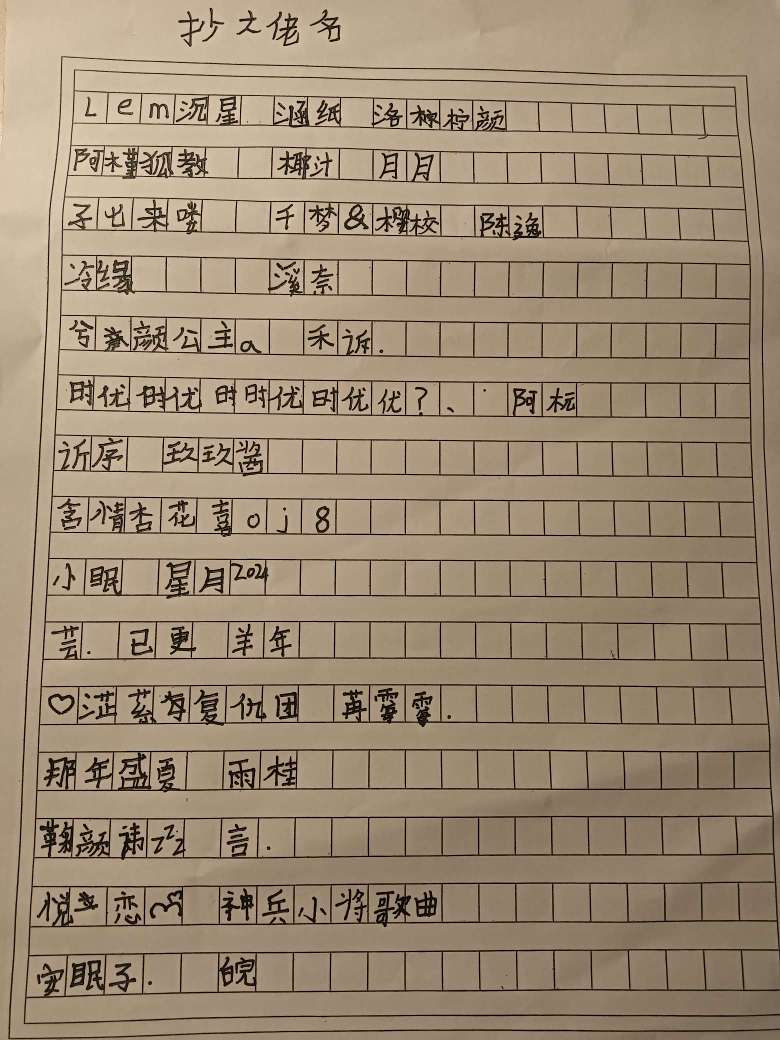 抄大佬名
Lem沉星 涵纸 洛柠颜
阿槿狐教 椰汁 月月
子出来喽 千梦&樱校 陈逸
冷缘 溪奈
兮颜公主a 禾诉.
时优时优时时优时优优?、 阿标
近序 玖玖酱
含情杏花喜oj8
小眠 星月2021
芸. 已更 羊年
♡复仇团 苒霏霏.
那年盛夏 雨桂
鞠颜祎zzz 言.
悦恋 神兵小将歌曲
安眠子. 皖